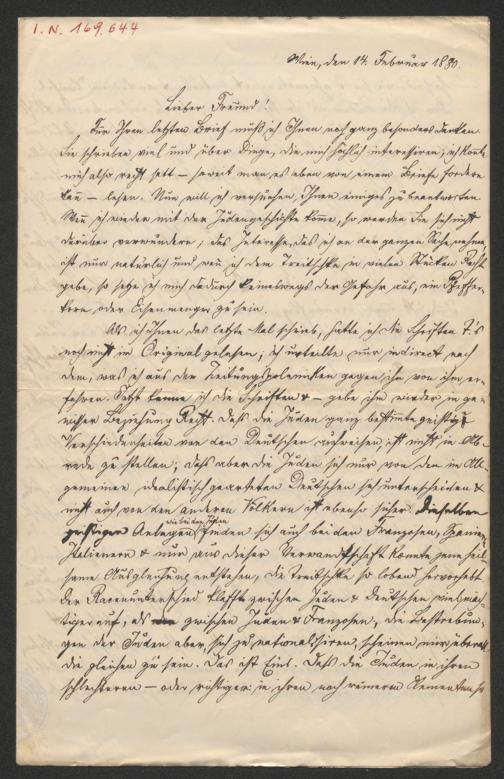 I. N. 169.644
Wien, den 14. Februar 1880.
Lieber Freund!
Für Ihren letzten Brief muß ich Ihnen noch ganz besonders danken.
Sie schrieben viel und über Dinge, die mich höchlich interessieren; ich konte
mich also recht satt — soweit man es eben von einem Briefe fordern
kañ — lesen. Nun will ich versuchen, Ihnen einiges zu beantworten.
Weñ ich wieder mit der Judengeschichte kome, so werden Sie sich nicht
darüber verwundern; das Interesse, das ich an der ganzen Sache nehme,
ist nur natürlich und weñ ich dem Treitschke in vielen Stücken Recht
gebe, so setze ich mich dadurch keineswegs der Gefahr aus, ein Pfeffer-
korn oder Eisenmenger zu sein.
Als ich Ihnen das letzte Mal schrieb, hatte ich die Schriften T's
noch nicht im Original gelesen; ich urteilte nur indirect nach
dem, was ich aus den Zeitungspolemiken gegen ihn von ihm er-
fahren. Jetzt kenne ich die Schriften & — gebe ihm wieder in ge-
wisser Beziehung Recht. Daß die Juden ganz bestimte geistige
Verschiedenheiten von den Deutschen aufweisen, ist nicht in Ab-
rede zu stellen; daß aber die Juden sich nur von den im All-
gemeinen idealistisch gearteten Deutschen sehr unterscheiden &
nicht auch von den anderen Völkern ist ebenso sicher. Dieselben
die bei den Juden
geistigen Anlagen finden sich auch bei den Franzosen, Spaniern,
Italienern & nur aus dieser Verwandtschaft konte jene seltsame
Ausgleichung entstehen, die Treitschke so lobend hervorhebt
Der Racenunterschied klafft zwischen Juden & Deutschen viel mäch-
tiger auf, als zwischen Juden & Franzosen; die Bestrebun-
gen der Juden aber, sich zu nationalisiren, scheinen mir überall
die gleichen zu sein. Das ist Eins. Daß die Juden in ihren
schlechteren — oder richtiger: in ihren noch reineren Elementen so